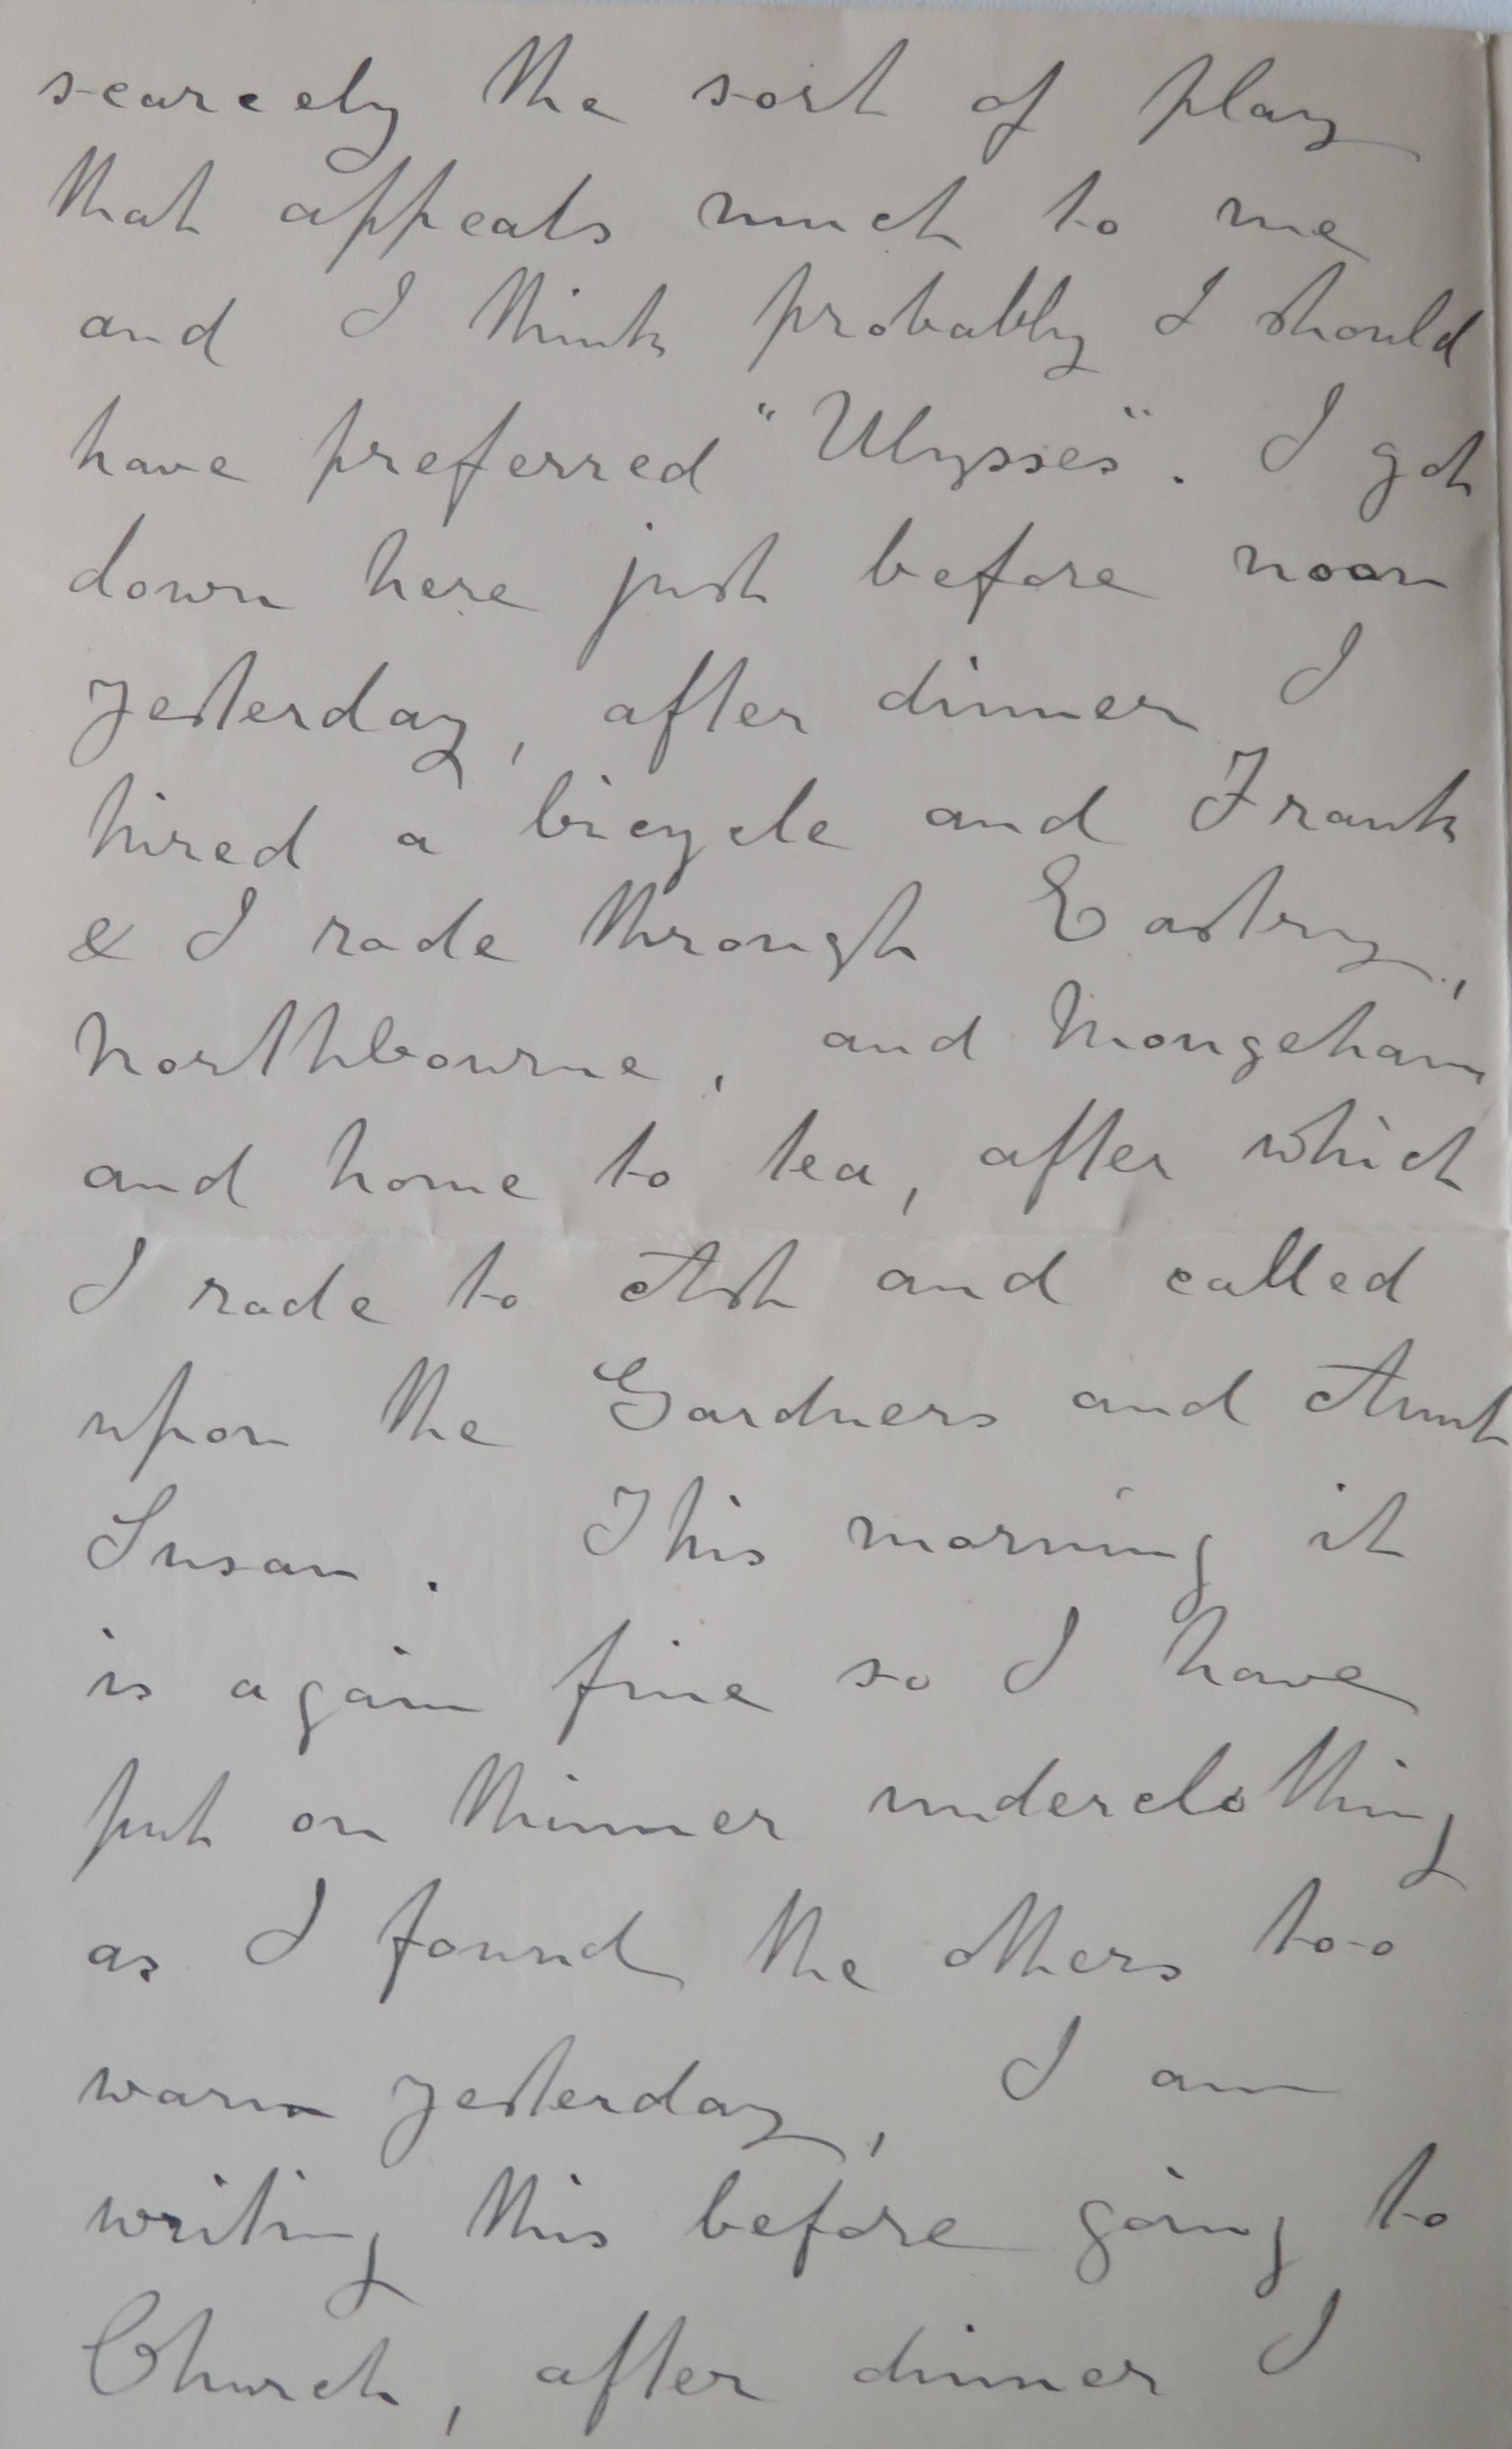 scarcely the sort of play
that appeals much to me
and I think probably I should
have preferred "Ulysses". I got
down here just before noon
yesterday, after dinner I
hired a bicycle and Frank
& I rode through Eastry,
Northbourne, and Mongeham
and home to tea, after which
I rode to Ash and called
upon the Gardners and Aunt
Susan. This morning it
is again fine so I have
put on thinner underclothing
as I found the others too
warm yesterday, I am
writing this before going to
Church, after dinner I